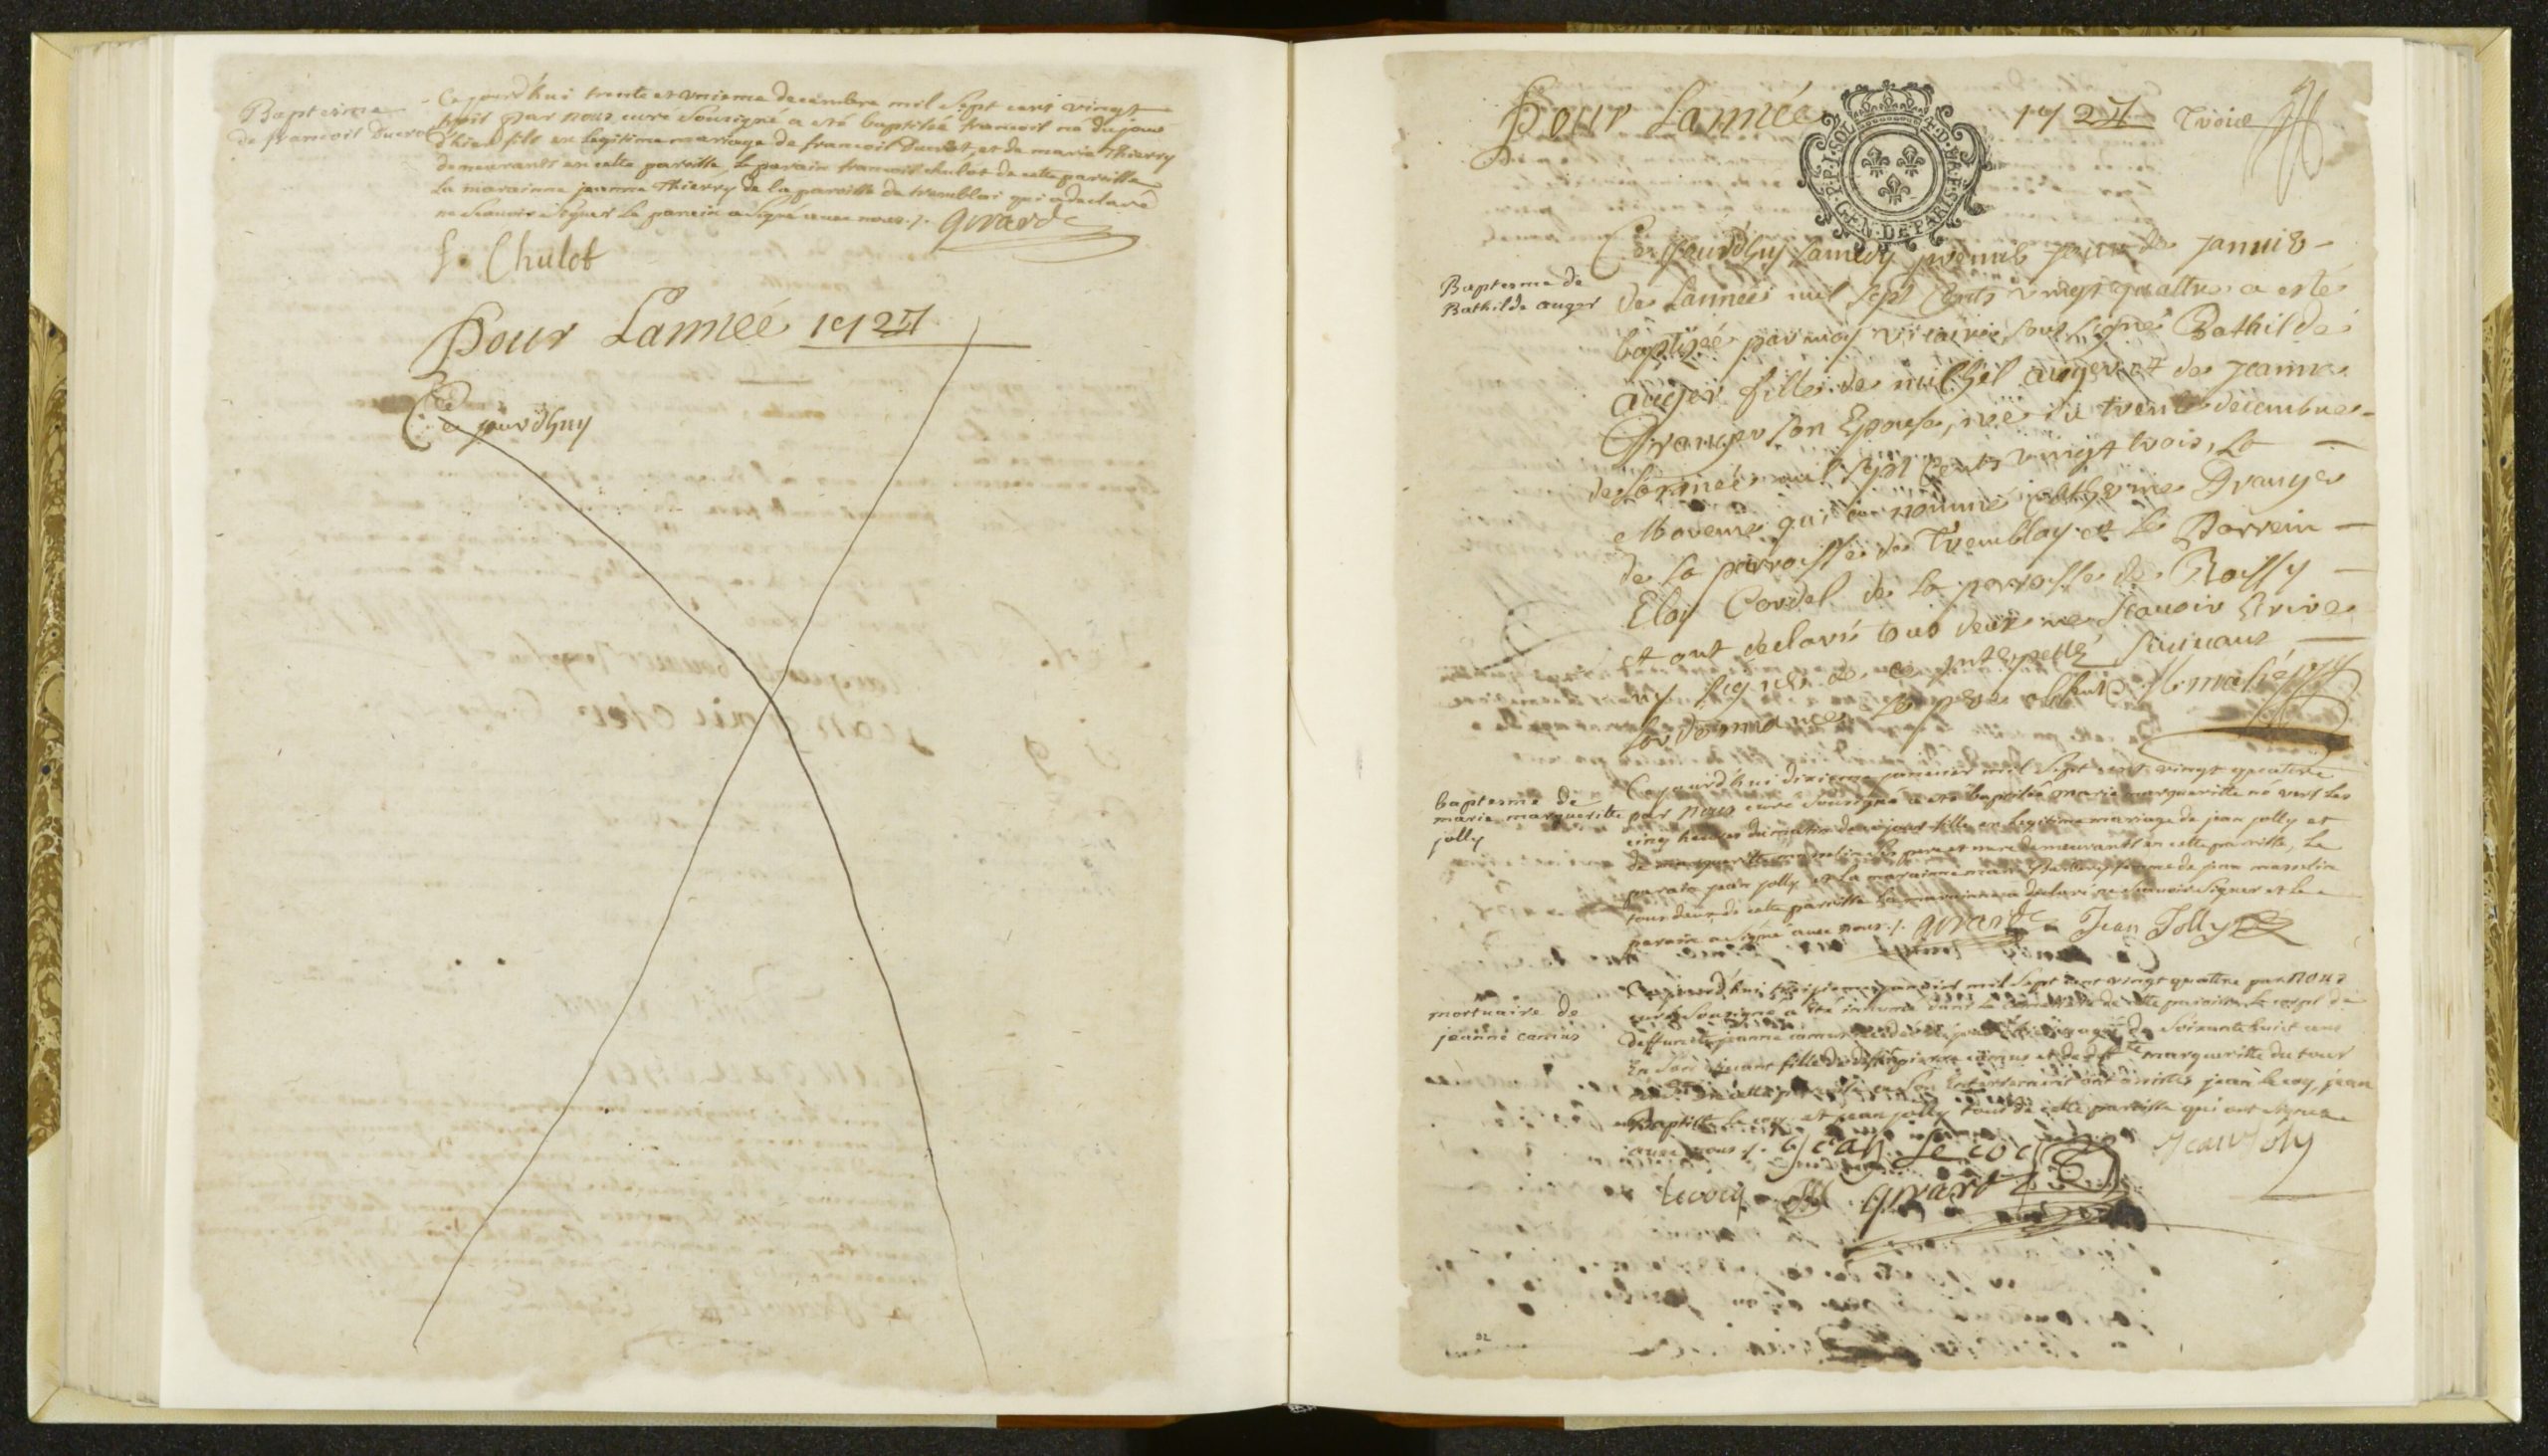 Baptesme
de francoil Ducrot
Cejourd'hui trente et unieme decembre mil Sept cens vingt
troil par nous curé Sousigné a eté baptisé francoil né du jour
d'hier fils en legitime mariage de francoil Ducrot, et de marie Thierry
demeurants en cette paroisse, Le parain francoil chulot de cette paroisse
La marainne jeanne Thierry de la paroisse de tremblai qui a declaré
ne Scavoir Signer Le parein a Signé avec nous ./. Girard
f. Chulot
Pour Lannee 1724
Ce jourdhuy
Pour Lannée 1724 Troice
Baptesme de
Bathilde auger
Ce jourdhuy Samedy premie jour de januie
de Lannee mil sept Cents vingt quattre a esté
baptisée par moy vicaire sous signé Bathilde
auger fille de michel auger et de jeanne
Dranger son Epouse, née du trente decembre
de Lannee mil sept Cents vingt trois, La
Mareine qui a nommé catherine Dranger
de La parroisse de Tremblay et Le Parrein
Eloy Cordel de La parroisse de Roissy
et ont declaré tous deux ne scauoir Ecrire
ny signer de ce interpellé suiuant
Lordonnance Le pere absent
baptesme de
marie margueritte
jolly
Cejourd'hui dixieme januier mil Sept cent vingt quatre
par nous curé Sousigné a eté baptisée marie margueritte né vers Les
cinq heures du matin de ce jour fille en legitime mariage de jean jolly et
de margueritte Les pere et mere demeurants en cette paroisse, Le
parain jean jolly et La marainne marie femme de jean
tous deux de cette paroisse La marainne a declaré ne Scauoir Signer et Le
parain a Signé auec nous ./. Girard Jean Jolly
mortuaire de
jeanne camus
Cejourd'hui januier mil Sept cent vingt quatre par nous
curé Sousigné a eté inhumé dans Le cimetiere de cette paroisse Le corps de
deffuncte jeanne camus agée de Soixante huict ans
En Son viuant fille de deffunt pierre camus et de margueritte du tour
Son Enterrement ont assistés jean Lecoq, jean
Baptiste Le coq et jean jolly tous de cette paroisse qui ont signez
auec nous ./. Jean Le coc Jean Joly
lecocq Girard